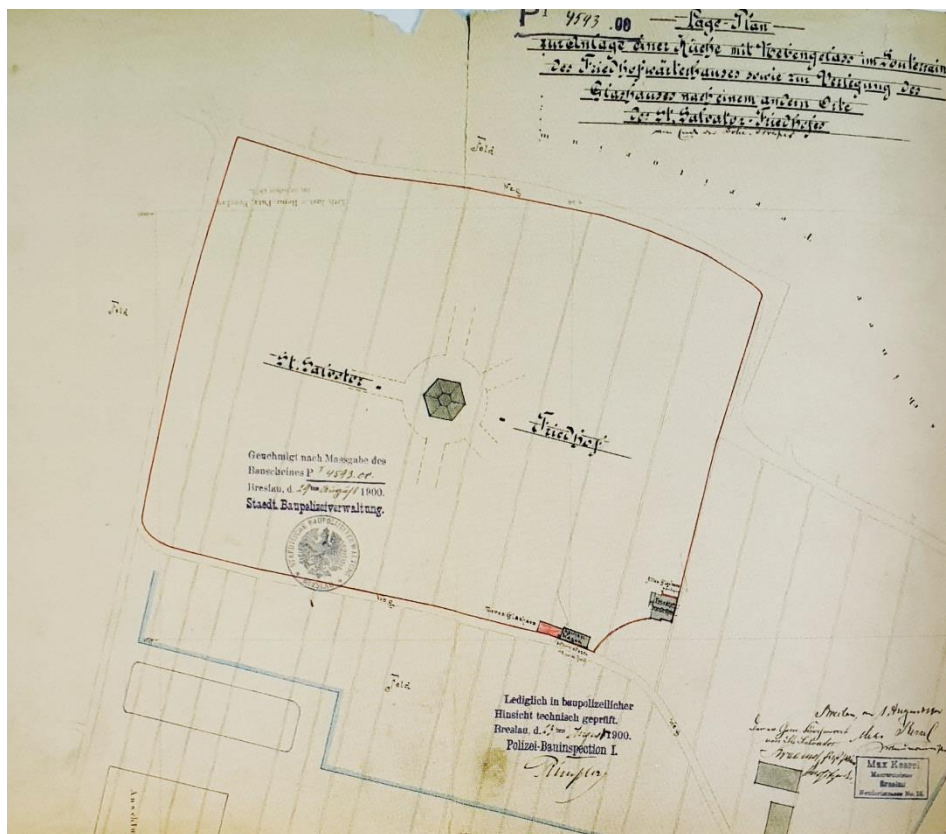 P I 4593.00
Lage-Plan
zur Anlage einer Küche mit Nebengelass im Souterrain
des Friedhofwärterhauses sowie zur Verlegung des
Glashauses nach einem andern Orte
des St. Salvator-Friedhofes
Feld
Weg
Feld
St. Salvator-
- Friedhof
Genehmigt nach Massgabe des
Bauscheines P I 4593.00
Breslau, d. 29ten August 1900.
Staedt. Baupolizeiverwaltung.
STÄDTISCHE BAUPOLIZEIVERWALTUNG
BRESLAU
Weg
Neues Glashaus
Feld
Weg
Lediglich in baupolizeilicher
Hinsicht technisch geprüft.
Breslau, d. August 1900.
Polizei-Bauinspection I.
Breslau, August
Max
Max
Maurermeister
Breslau
No. 16.